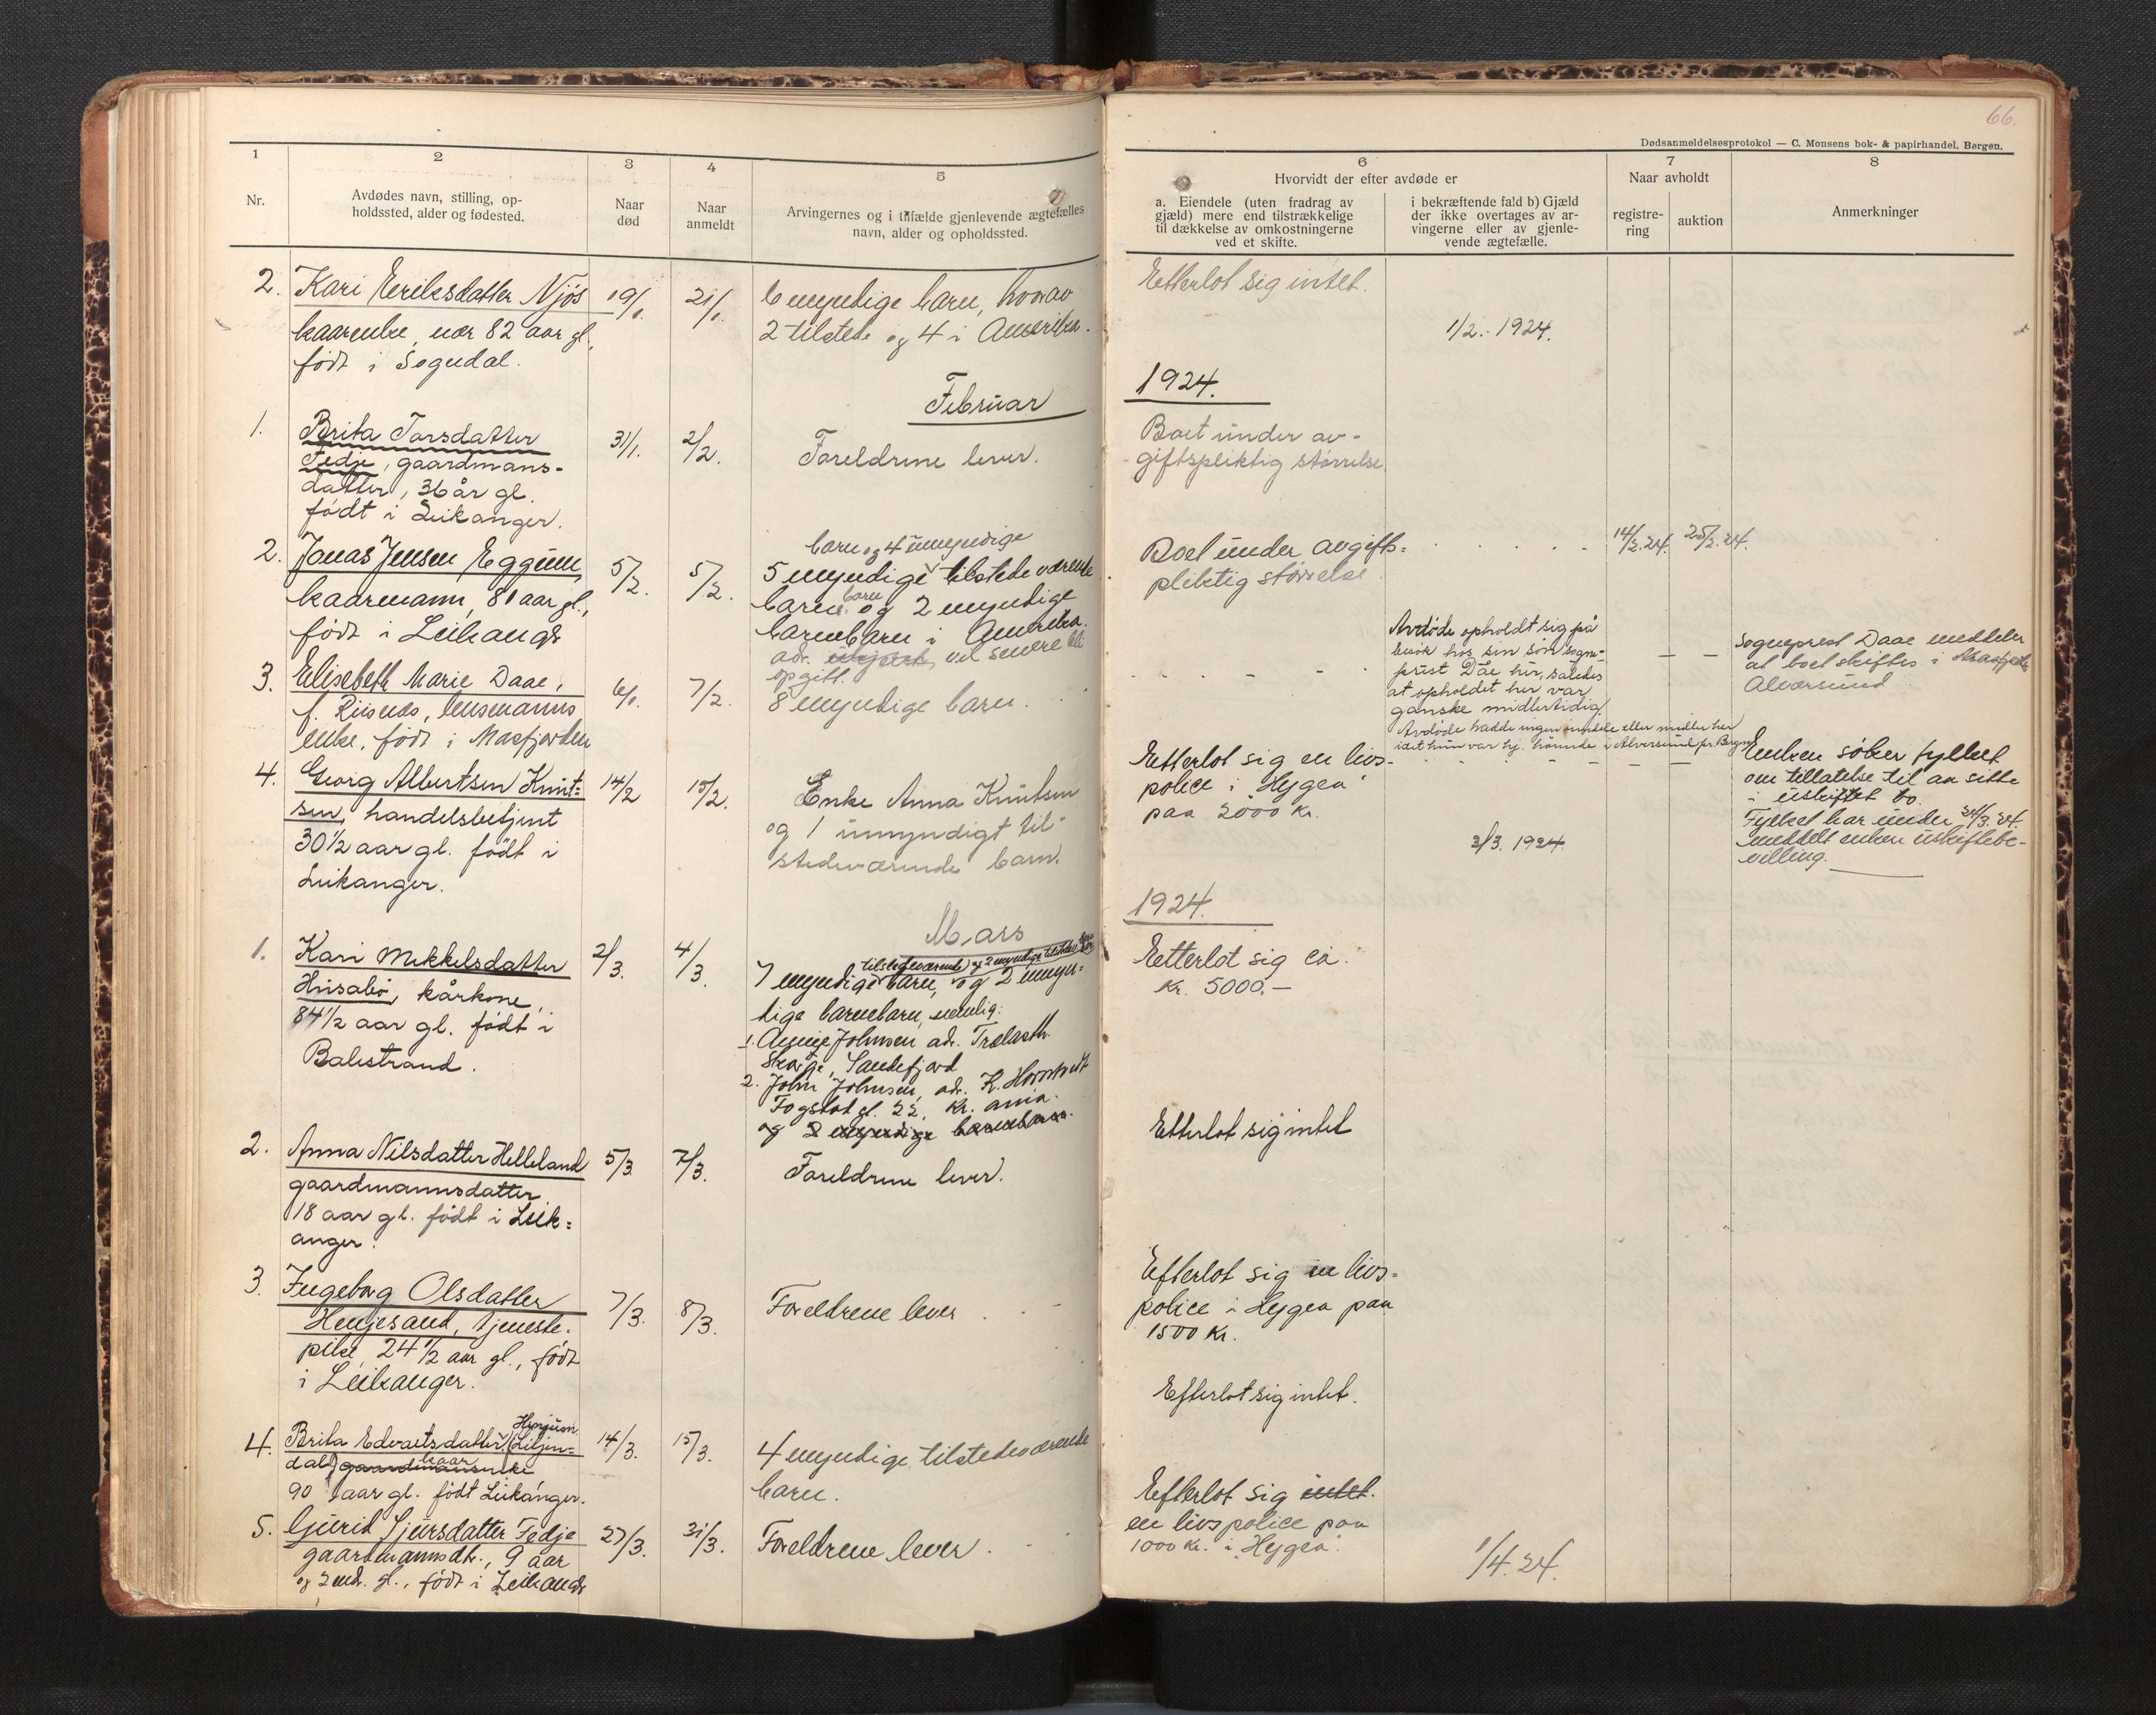 66.
Dødsanmeldelsesprotokol — C. Monsens bok- & papirhandel, Bergen.
1
2
3
4
5
Nr.
Avdødes navn, stilling, op-
holdssted, alder og fødested.
Naar
død
Naar
anmeldt
Arvingernes og i tilfælde gjenlevende ægtefælles
navn, alder og opholdssted.
6
7
8
Hvorvidt der efter avdøde er
a. Eiendele (uten fradrag av
gjæld) mere end tilstrækkelige
til dækkelse av omkostningerne
ved et skifte.
i bekræftende fald b) Gjæld
der ikke overtages av ar-
vingerne eller av gjenle-
vende ægtefælle.
Naar avholdt
registre-
ring
auktion
Anmerkninger
2. Kari Eriksdatter Njøs
kaarenke, nær 82 aar gl.,
født i Sogndal.
19/1.
21/1.
6 myndige barn, hvorav
2 tilstede og 4 i Amerika.
Etterlot sig intet.
1/2. 1924.
Februar
1924.
1. Brita Larsdatter
Fedje, gaardmans-
datter, 36 år gl.
født i Leikanger.
31/1.
2/2.
Foreldrene lever.
Boet under av-
giftspliktig størrelse
2. Jonas Jensen Eggum,
kaarmann, 81 aar gl.,
født i Leikangr
5/2.
5/2.
barn og 4 umyndige
5 myndige tilstedeværende
barn
barne og 2 myndige
barnebarn i Amerika.
adr. vil senere bli
opgitt.
Boet under avgifts-
pliktig størrelse.
14/2.24.
25/2.24.
3. Elisebeth Marie Daae,
f. Risnes, lensmanns
enke, født i Masfjorden
6/1.
7/2.
8 myndige barn.
Avdøde opholdt sig på
besøk hos sin søn sogne-
prest Dae her, således
at opholdet her var
ganske midlertidig.
Avdøde hadde ingen eiendele eller midler her
idet hun var hj. hörende i Alversund pr. Bergen
Sogneprest Daae meddeler
at boet skiftes i
Alversund
4. Georg Albertsen Knut-
sen, handelsbetjent
30 1/2 aar gl. født i
Leikanger.
14/2
15/2.
Enke Anna Knutsen
og 1 umyndigt til-
stedeværende barn.
Etterlot sig en livs-
police i "Hygea"
paa 2000 kr.
3/3. 1924.
Enken søker fylket
om tillatelse til aa sitte
i uskiftet bo.
Fylket har under 24/3.24.
meddelt enken uskiftebe-
villing.
Mars
1924.
1. Kari Mikkelsdatter
Husabø, kårkone,
84 1/2 aar gl. født i
Balestrand.
2/3.
4/3.
tilstedeværende og 2 myndige tilstedev. barnebarn
7 myndige barn, og 2 umyn-
dige barnebarn, nemlig:
1. Johnsen adr. Trælasth.
Skorge, Sandefjord
2. John Johnsen, adr. K. Hornstvedt
Fogstadgt. 22, Kr.ania.
og 2 myndige barnebarn.
Etterlot sig ca.
Kr. 5000.—
2. Anna Nilsdatter Helleland
gaardmannsdatter.
18 aar gl. født i Leik-
anger.
5/3
7/3.
Foreldrene lever.
Etterlot sig intet
3. Ingeborg Olsdatter
Henjesand, tjeneste-
pike, 24 1/2 aar gl., født
i Leikanger.
7/3.
8/3.
Foreldrene lever.
Efterlot sig en livs-
police i Hygea paa
1500 Kr.
4. Brita Edvartsdatter (Liljen-
Henjum
dal) gaardmansenke
kaar
90 aar gl. født Leikanger.
14/3.
15/3.
4 myndige tilstedeværende
barn.
Efterlot sig intet.
5. Gjurid Sjursdatter Fedje
gaardmannsdtr., 9 aar
og 2 mdr. gl., født i Leikangr
27/3.
31/3.
Foreldrene lever.
Efterlot sig intet.
en livspolice paa
1000 Kr. i "Hygea".
1/4.24.